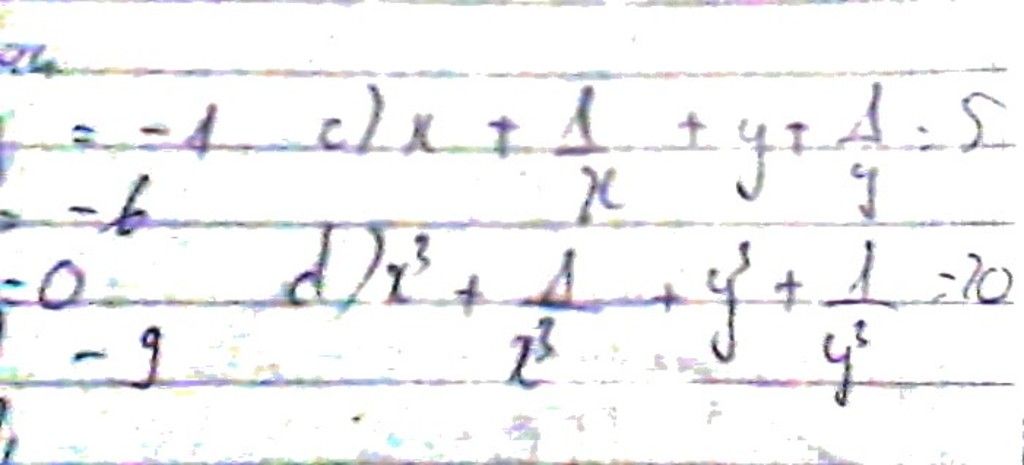 = -1 c) x + 1/x + y + 1/y = 5
= -6
= 0 d) x³ + 1/x³ + y³ + 1/y³ = 20
- 9